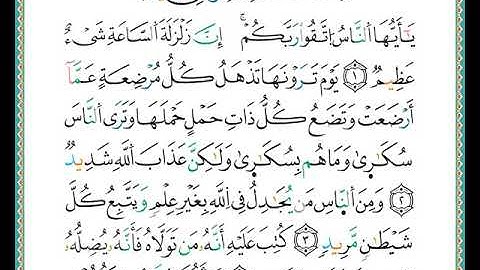 يَٰٓأَيُّهَا ٱلنَّاسُ ٱتَّقُوا۟ رَبَّكُمْ ۚ إِنَّ زَلْزَلَةَ ٱلسَّاعَةِ شَىْءٌ
عَظِيمٌ ١ يَوْمَ تَرَوْنَهَا تَذْهَلُ كُلُّ مُرْضِعَةٍ عَمَّآ
أَرْضَعَتْ وَتَضَعُ كُلُّ ذَاتِ حَمْلٍ حَمْلَهَا وَتَرَى ٱلنَّاسَ
سُكَٰرَىٰ وَمَا هُم بِسُكَٰرَىٰ وَلَٰكِنَّ عَذَابَ ٱللَّهِ شَدِيدٌ
٢ وَمِنَ ٱلنَّاسِ مَن يُجَٰدِلُ فِى ٱللَّهِ بِغَيْرِ عِلْمٍ وَيَتَّبِعُ كُلَّ
شَيْطَٰنٍ مَّرِيدٍ ٣ كُتِبَ عَلَيْهِ أَنَّهُۥ مَن تَوَلَّاهُ فَأَنَّهُۥ يُضِلُّهُۥ